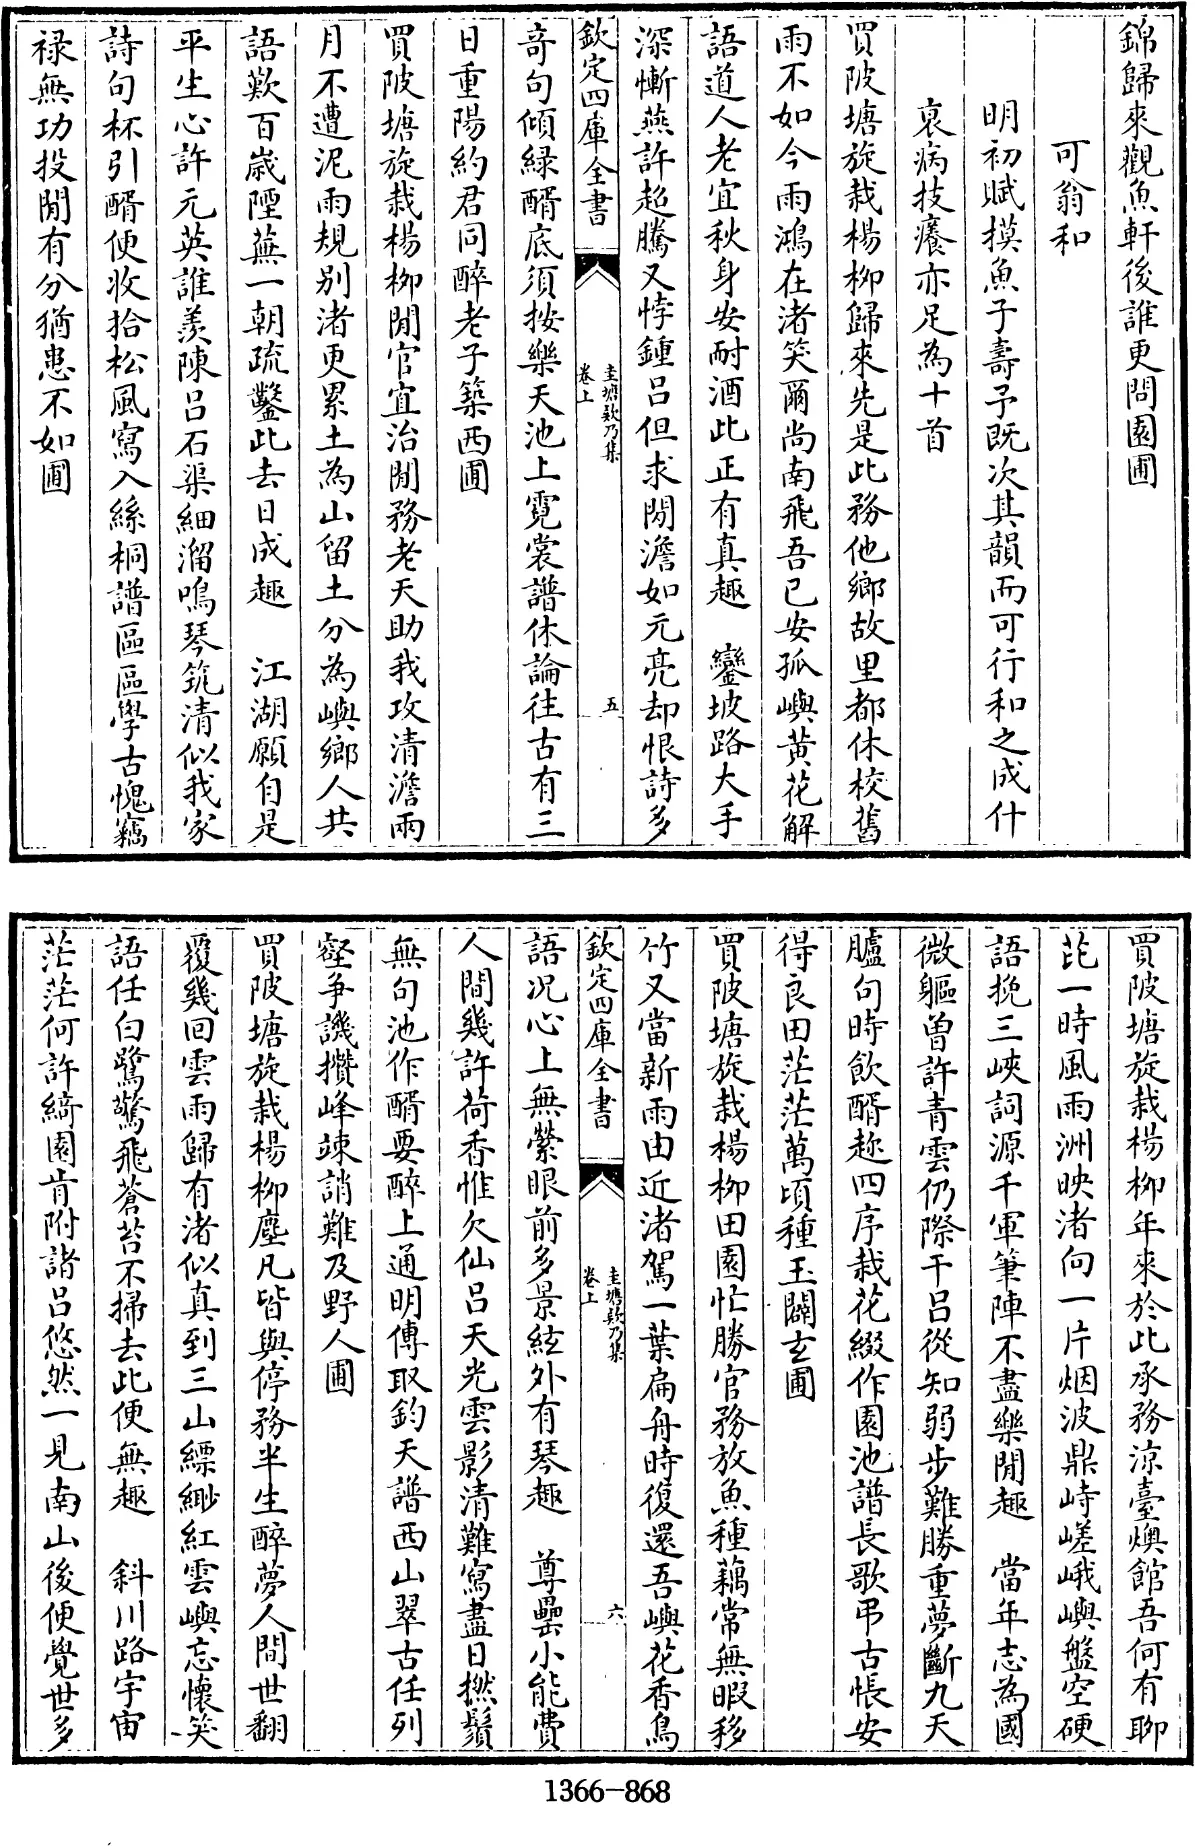 錦歸來觀魚軒後誰更問園圃
可翁和
明初賦摸魚子壽予既次其韻而可行和之成什
衰病技癢亦足為十首
買陂塘旋栽楊柳歸來先是此務他鄉故里都休校舊
雨不如今雨鴻在渚笑爾尚南飛吾已安孤嶼黄花解
語道人老宜秋身安耐酒此正有真趣 鑾坡路大手
深慚燕許超騰又悖鍾吕但求閒澹如元亮却恨詩多
欽定四庫全書
圭塘欵乃集
卷上
五
竒句傾緑醑底須按樂天池上霓裳譜休論往古有三
日重陽約君同醉老子築西圃
買陂塘旋栽楊柳閒官宜治閒務老天助我攻清澹兩
月不遭泥雨規别渚更累土為山留土分為嶼鄉人共
語歎百歳陻蕪一朝疏鑿此去日成趣 江湖願自是
平生心許元英誰羨陳吕石渠細溜鳴琴筑清似我家
詩句杯引醑便收拾松風寫入絲桐譜區區學古愧竊
禄無功投閒有分猶患不如圃
買陂塘旋栽楊柳年來於此承務涼臺燠館吾何有聊
芘一時風雨洲映渚向一片烟波鼎峙嵯峨嶼盤空硬
語挽三峽詞源千軍筆陣不盡樂閒趣 當年志為國
微軀曾許青雲仍際干吕從知弱步難勝重夢斷九天
臚句時飲醑趂四序栽花綴作園池譜長歌弔古悵安
得良田茫茫萬頃種玉闢玄圃
買陂塘旋栽楊柳田園忙勝官務放魚種藕常無暇移
竹又當新雨由近渚駕一葉扁舟時復還吾嶼花香鳥
欽定四庫全書
圭塘欵乃集
卷上
六
語况心上無縈眼前多景絃外有琴趣 尊罍小能費
人間幾許荷香惟欠仙吕天光雲影清難寫盡日撚鬚
無句池作醑要醉上通明傳取鈞天譜西山翠古任列
壑争譏攢峰竦誚難及野人圃
買陂塘旋栽楊柳塵凡皆與停務半生醉夢人間世翻
覆幾回雲雨歸有渚似真到三山縹緲紅雲嶼忘懷笑
語任白鷺驚飛蒼苔不掃去此便無趣 斜川路宇宙
茫茫何許綺園肯附諸吕悠然一見南山後便覺世多
1366-868